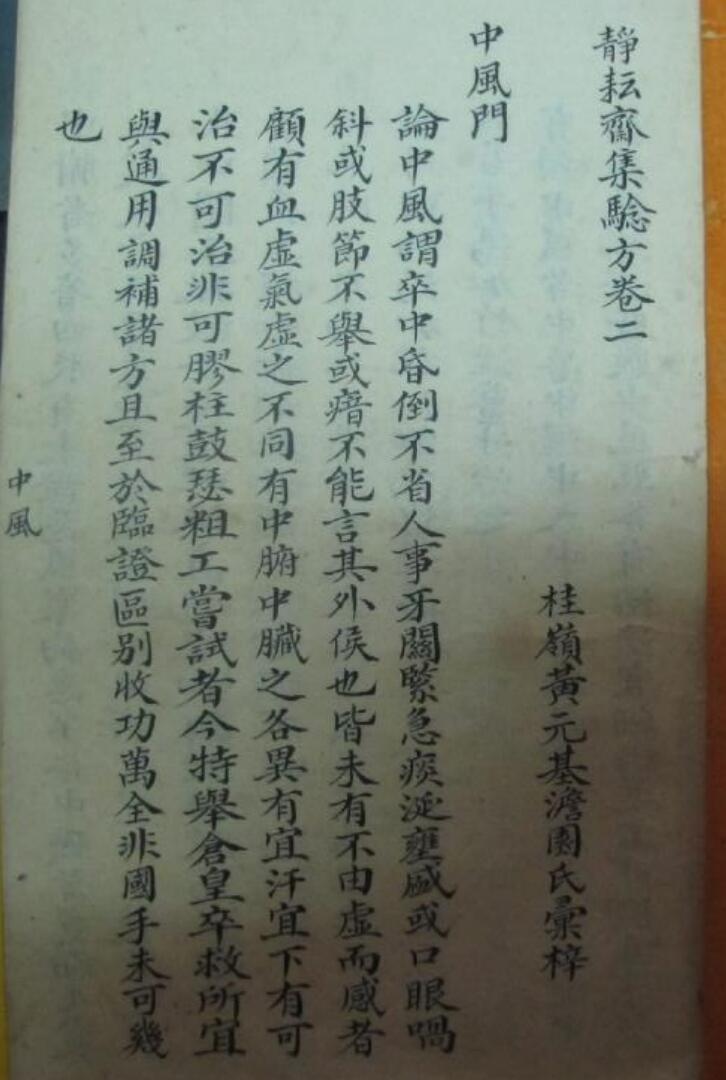 靜耘齋集驗方卷二
桂嶺黃元基澹園氏彙梓
中風門
論中風謂卒中昏倒不省人事牙關緊急痰涎壅盛或口眼喎
斜或肢節不舉或瘖不能言其外侯也皆未有不由虛而感者
顧有血虛氣虛之不同有中腑中臟之各異有宜汗宜下有可
治不可治非可膠柱鼓瑟粗工嘗試者今特舉倉皇卒救所宜
與通用調補諸方且至於臨證區别收功萬全非國手未可幾
也
中風